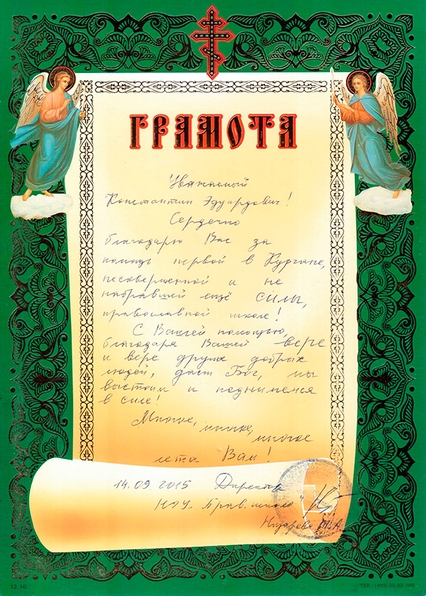 ГРАМОТА
Уважаемый
Константин Эдуардович!
Сердечно
благодарю Вас за
помощь первой в Кургане,
несовершенной и не
набравшей ещё силы,
православной школе!
С Вашей помощью,
благодаря Вашей вере
и вере других добрых
людей, даст Бог, мы
выстоим и поднимемся
в силе!
Многая, многая,
многая
лета Вам!
14.09 2015 Директор
НОУ Прав. школа